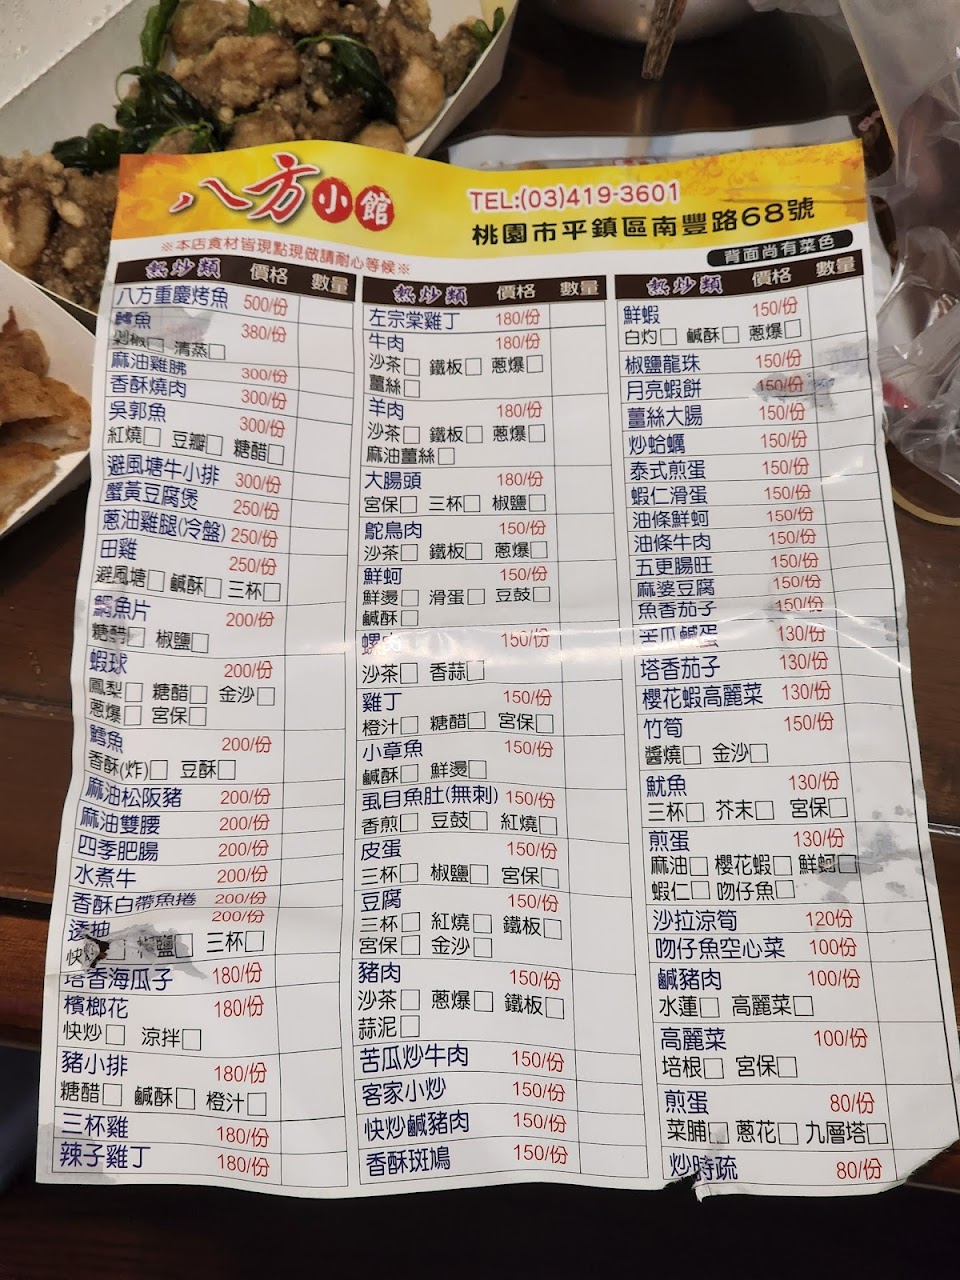 八方小館
TEL:(03)419-3601
桃園市平鎮區南豐路68號
※本店食材皆現點現做請耐心等候※
背面尚有菜色
熱炒類 價格 數量
八方重慶烤魚 500/份
鱈魚 380/份
剁椒□ 清蒸□
麻油雞胇 300/份
香酥燒肉 300/份
吳郭魚 300/份
紅燒□ 豆瓣□ 糖醋□
避風塘牛小排 300/份
蟹黃豆腐煲 250/份
蔥油雞腿(冷盤) 250/份
田雞 250/份
避風塘□ 鹹酥□ 三杯□
鯛魚片 200/份
糖醋□ 椒鹽□
蝦球 200/份
鳳梨□ 糖醋□ 金沙□
蔥爆□ 宮保□
鱈魚 200/份
香酥(炸)□ 豆酥□
麻油松阪豬 200/份
麻油雙腰 200/份
四季肥腸 200/份
水煮牛 200/份
香酥白帶魚捲 200/份
透抽 200/份
快 □ 椒鹽□ 三杯□
塔香海瓜子 180/份
檳榔花 180/份
快炒□ 涼拌□
豬小排 180/份
糖醋□ 鹹酥□ 橙汁□
三杯雞 180/份
辣子雞丁 180/份
熱炒類 價格 數量
左宗棠雞丁 180/份
牛肉 180/份
沙茶□ 鐵板□ 蔥爆□
薑絲□
羊肉 180/份
沙茶□ 鐵板□ 蔥爆□
麻油薑絲□
大腸頭 180/份
宮保□ 三杯□ 椒鹽□
鴕鳥肉 150/份
沙茶□ 鐵板□ 蔥爆□
鮮蚵 150/份
鮮燙□ 滑蛋□ 豆鼓□
鹹酥□
螺肉 150/份
沙茶□ 香蒜□
雞丁 150/份
橙汁□ 糖醋□ 宮保□
小章魚 150/份
鹹酥□ 鮮燙□
虱目魚肚(無刺) 150/份
香煎□ 豆鼓□ 紅燒□
皮蛋 150/份
三杯□ 椒鹽□ 宮保□
豆腐 150/份
三杯□ 紅燒□ 鐵板□
宮保□ 金沙□
豬肉 150/份
沙茶□ 蔥爆□ 鐵板□
蒜泥□
苦瓜炒牛肉 150/份
客家小炒 150/份
快炒鹹豬肉 150/份
香酥斑鳩 150/份
熱炒類 價格 數量
鮮蝦 150/份
白灼□ 鹹酥□ 蔥爆□
椒鹽龍珠 150/份
月亮蝦餅 150/份
薑絲大腸 150/份
炒蛤蠣 150/份
泰式煎蛋 150/份
蝦仁滑蛋 150/份
油條鮮蚵 150/份
油條牛肉 150/份
五更腸旺 150/份
麻婆豆腐 150/份
魚香茄子 150/份
苦瓜鹹蛋 130/份
塔香茄子 130/份
櫻花蝦高麗菜 130/份
竹筍 150/份
醬燒□ 金沙□
魷魚 130/份
三杯□ 芥末□ 宮保□
煎蛋 130/份
麻油□ 櫻花蝦□ 鮮蚵□
蝦仁□ 吻仔魚□
沙拉涼筍 120/份
吻仔魚空心菜 100/份
鹹豬肉 100/份
水蓮□ 高麗菜□
高麗菜 100/份
培根□ 宮保□
煎蛋 80/份
菜脯□ 蔥花□ 九層塔□
炒時疏 80/份